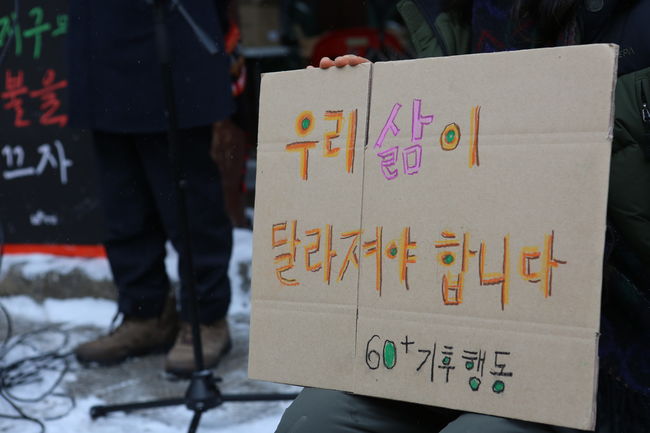 지구
불을
끄자
우리 삶이
달라져야 합니다
60+기후행동